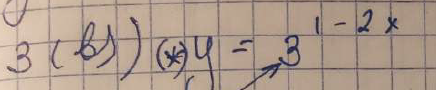 3 (b) (*) y = 3^{1-2x}